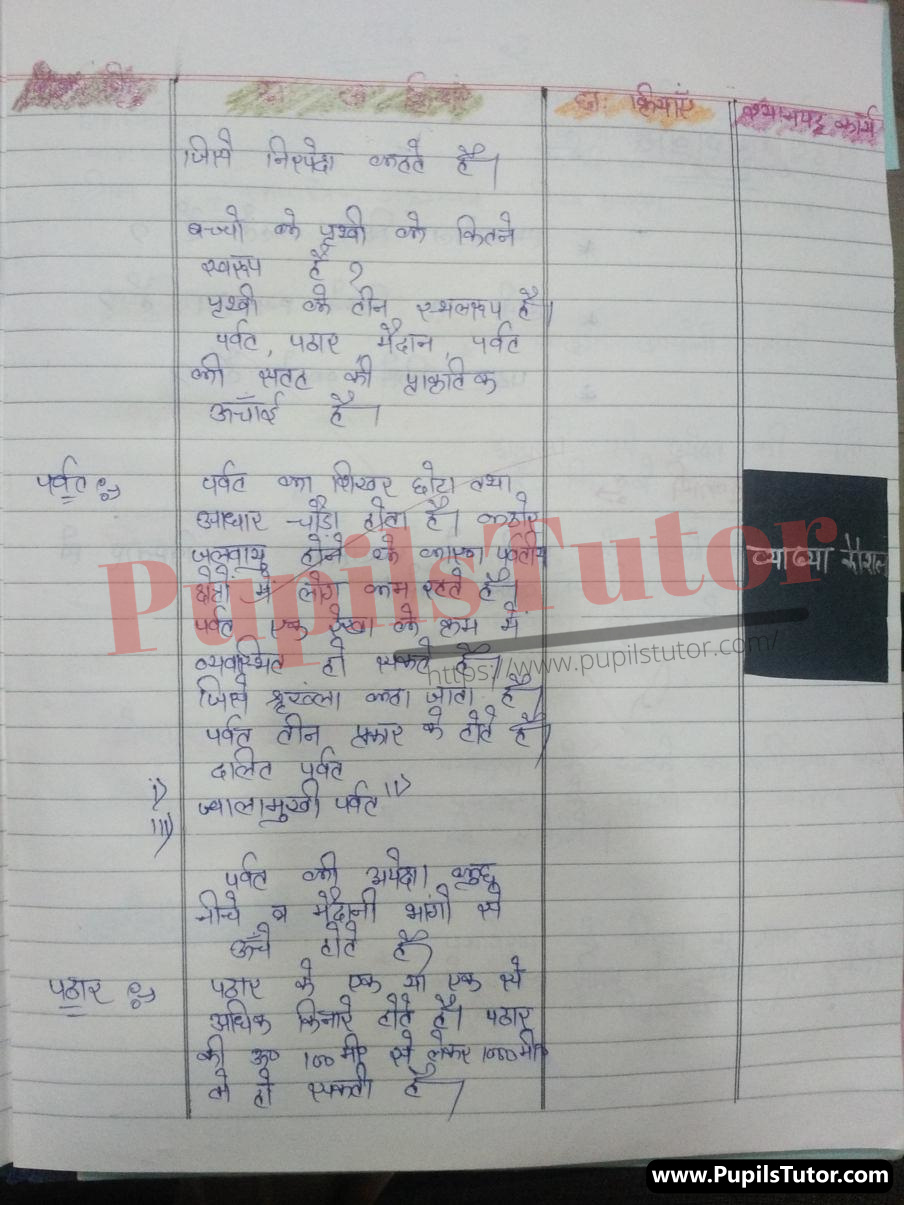 छा. क्रियाएँ
श्यामपट्ट कार्य
जिसे निक्षेपण कहते है।
बच्चो के पृथ्वी के कितने
स्वरूप है ?
पृथ्वी के तीन स्थलरूप है।
पर्वत, पठार, मैदान, पर्वत
की सतह की प्राकृतिक
ऊँचाई है।
पर्वत पर्वत का शिखर छोटा तथा
आधार चौड़ा होता है। कठोर
जलवायु होने के कारण पर्वतीय
क्षेत्रों में लोग कम रहते है।
व्याख्या कौशल
पर्वत एक रेखा के क्रम में
व्यवस्थित हो सकते है।
जिसे श्रृखंला कहा जाता है
पर्वत तीन प्रकार के होते है
पर्वत
i) ज्वालामुखी पर्वत ii)
iii)
पर्वत की अपेक्षा कुछ
नीचे व मैदानी भागो से
ऊँचे होते है
पठार पठार के एक या एक से
अधिक किनारे होते है। पठार
की ऊ० 100 मी० से लेकर 1000 मी०
के हो सकती है
PupilsTutor
https://www.pupilstutor.com/
www.PupilsTutor.com